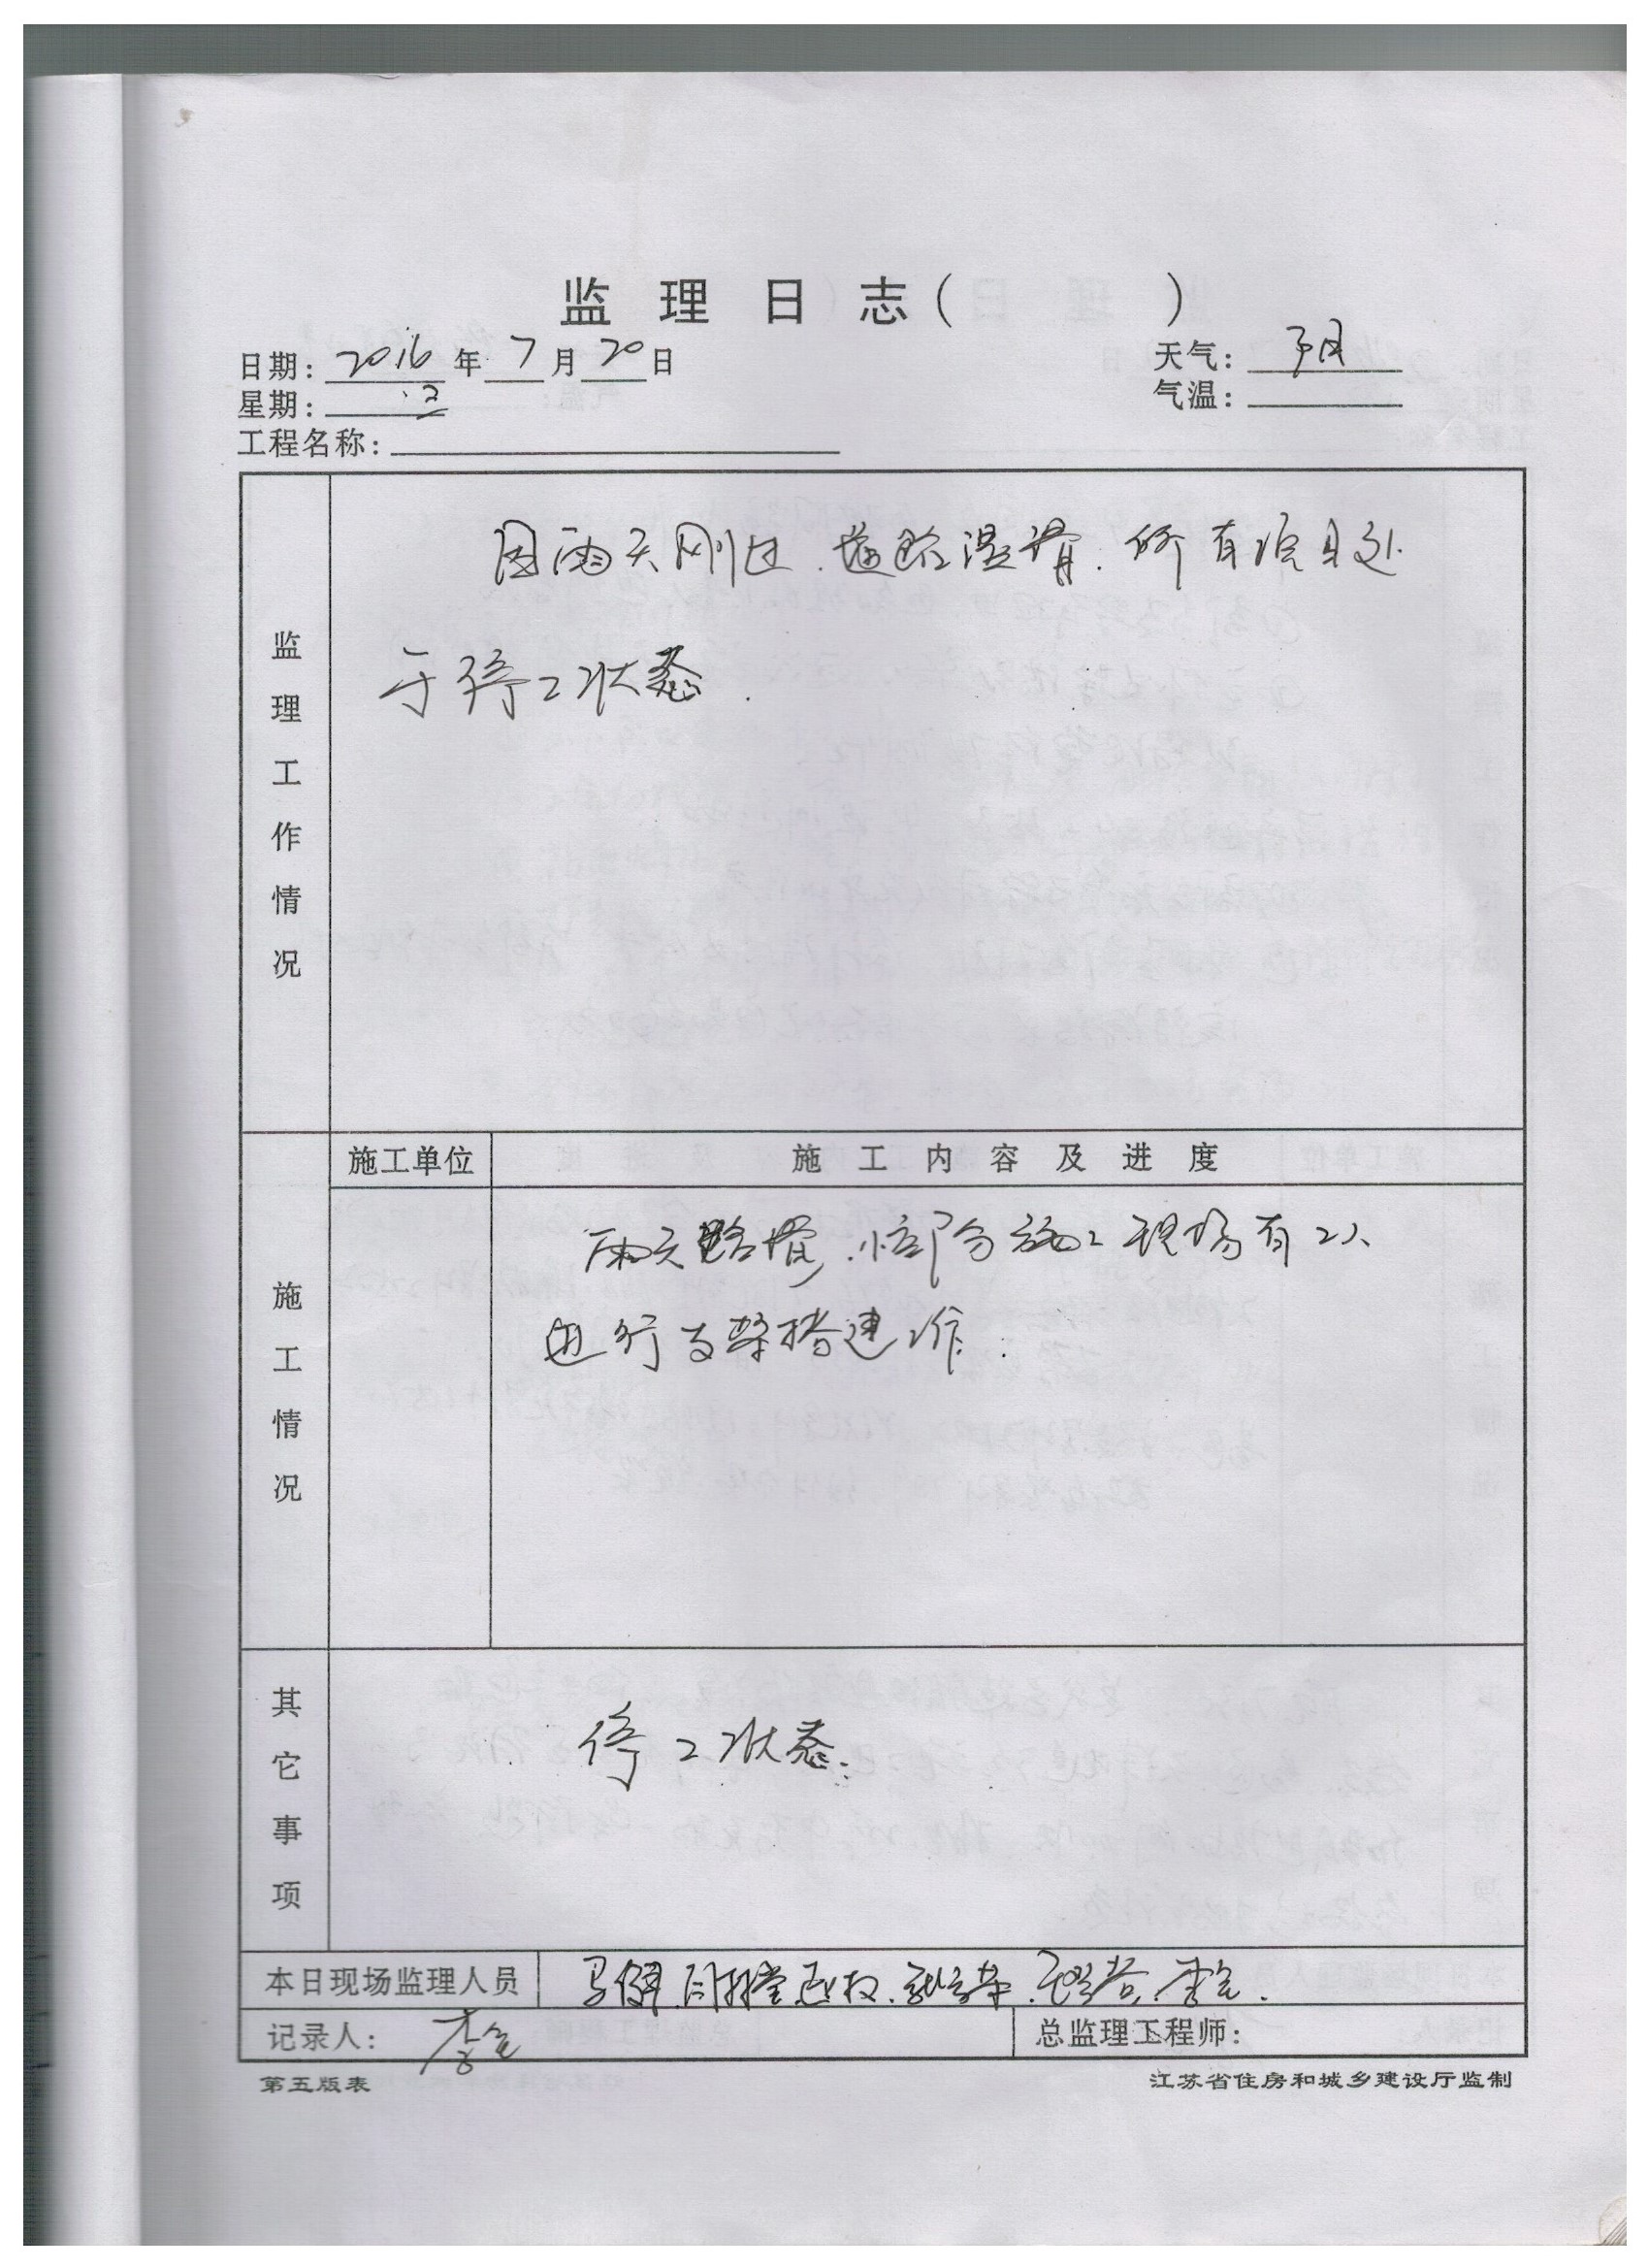 监理日志（ ）
日期：2016年7月20日 天气：
星期：三 气温：
工程名称：
监理工作情况
因雨天刚过.道路湿滑.所有项目处
于停工状态.
施工单位 施工内容及进度
施工情况
雨天路滑.小部分施工现场有工人
进行支架搭建工作.
其它事项
停工状态.
本日现场监理人员
记录人： 总监理工程师：
第五版表 江苏省住房和城乡建设厅监制